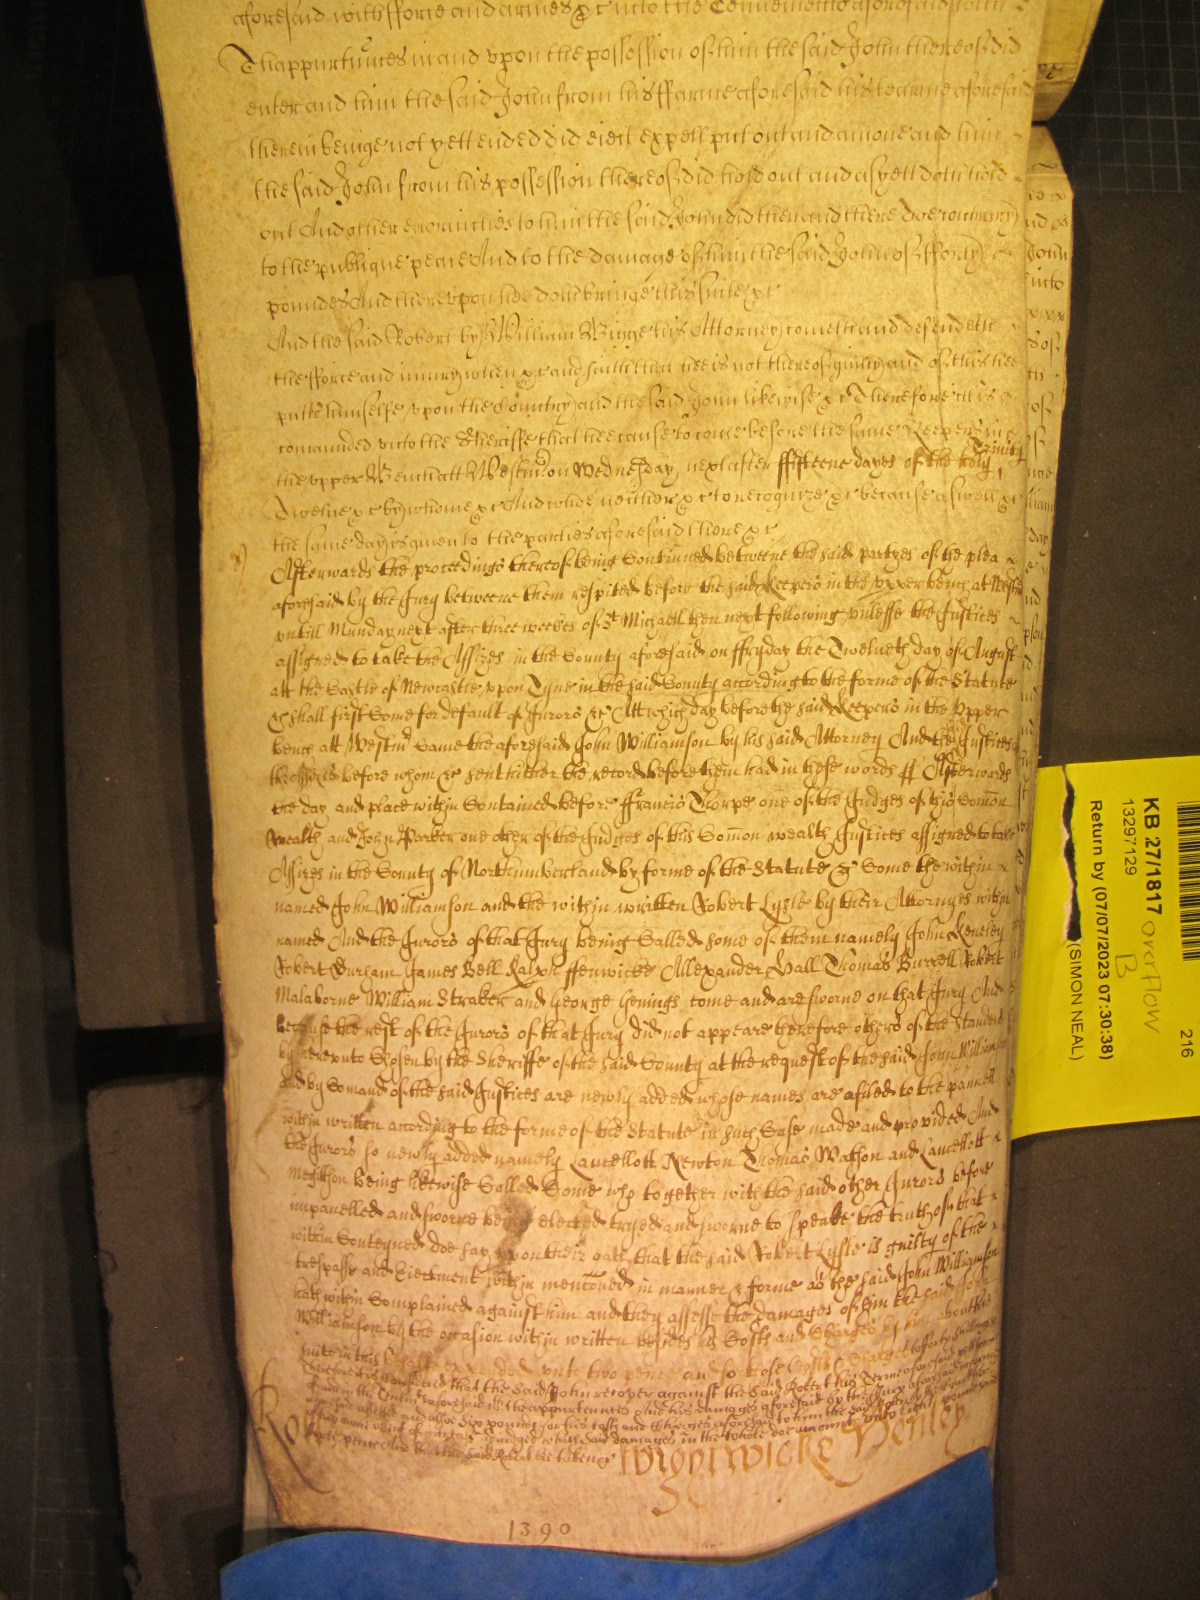 aforesaid with fforce and armes &c into the Tenements aforesaid with
Thappurtnnces in and vpon the possession of him the said John thereof did
enter and him the said John from his ffarme aforesaid his tearme aforesaid
therein beinge not yett ended did eiect expell put out and amove and him
the said John from his possession thereof did hold out and as yett doth hold
out And other enormities to him the said John did then and there doe contrary
to the publique peace And to the damage of him the said John of fforty
poundes And therevpon hee doth bringe this suite &c
And the said Robert by William Winge his Attorney cometh and defendeth
the fforce and iniury when &c and saith that hee is not thereof guilty and of this hee
putts himselfe vpon the Country and the said John likewise &c Therefore it is
comanded vnto the Sheriffe that hee cause to come before the same Keepers in
the vpper Bench att Westmr on Wednesday next after ffifteene dayes of the holy Trinity
Twelue &c by whome &c And whoe neither &c to recognize &c because aswell &c
the same day is given to the parties aforesaid there &c
Afterwards the proceedings thereof being Continued betweene the said partyes of the plea
aforesaid by the Jury betweene them respited before the said Keepers in the vpper bench at Westmr
vntill Munday next after three weekes of St Michaell then next following vnlesse the Justices
assigned to take the Assizes in the County aforesaid on ffryday the Twelveth day of August
att the Castle of Newcastle vpon Tyne in the said County according to the forme of the Statute
&c shall first Come for default of Jurors &c Att which day before the said Keepers in the vpper
bench att Westmr Came the aforesaid John Williamson by his said Attorney And the Justices
the Assizes before whom &c sent hither the record before them had in these words ss Afterwards
the day and place within Contained before ffrancis Thorpe one of the Judges of this Comon
wealth and John Parker one other of the Judges of this Comon wealth Justices assigned to take
Assizes in the County of Northumberland by forme of the Statute &c Come the within
named John Williamson and the within written Robert Lysle by their Attornyes within
named And the Jurors of that Jury being Called some of them namely John
Robert Durham James Bell Ralph ffenwicke Allexander Hall Thomas Burrell Robert
Malaborne William Straker and George Jenings come and are sworne on that Jury And
because the rest of the Jurors of that Jury did not appeare therefore others of the Standers
by herevnto Chosen by the Sheriffe of the said County at the request of the said John Williamson
and by Comand of the said Justices are newly added whose names are afiled to the pannell
within written according to the forme of the Statute in such Case made and provided And
the Jurors so newly added namely Lancellott Newton Thomas Watson and Lancellott
being likewise Called Come who together with the said other Jurors before
impanelled and sworne being elected tryed and sworne to speake the truth of that
within Conteyned doe say vpon their oath that the said Robert Lysle is guilty of the
trespasse and Eiectment within menconed in manner & forme as the said John Williamson
hath within Complained against him and they assesse the damages of him the said John
Williamson by the occasion within written besides his Costs and Charges by him about his
suite in this behalfe expended vnto two pence and for those Costs & Charges to forty shillings
Therefore it is considered that the said John recover against the said Robert his Terme aforesaid yett to come
of and in the Tenements aforesaid with the appurtennces And his damages aforesaid by the Jury aforesaid in forme
aforesaid assessed and allsoe six poundes for his costs and Charges aforesaid to him the said
adiudged which said damages in the whole doe amount vnto eight poundes and
two pence And that the said Robert bee taken &c
Ro
Wightwicke Henley
1390
KB 27/1817 overflow
B
13297129
Return by (07/07/2023 07:30:38)
(SIMON NEAL)
216